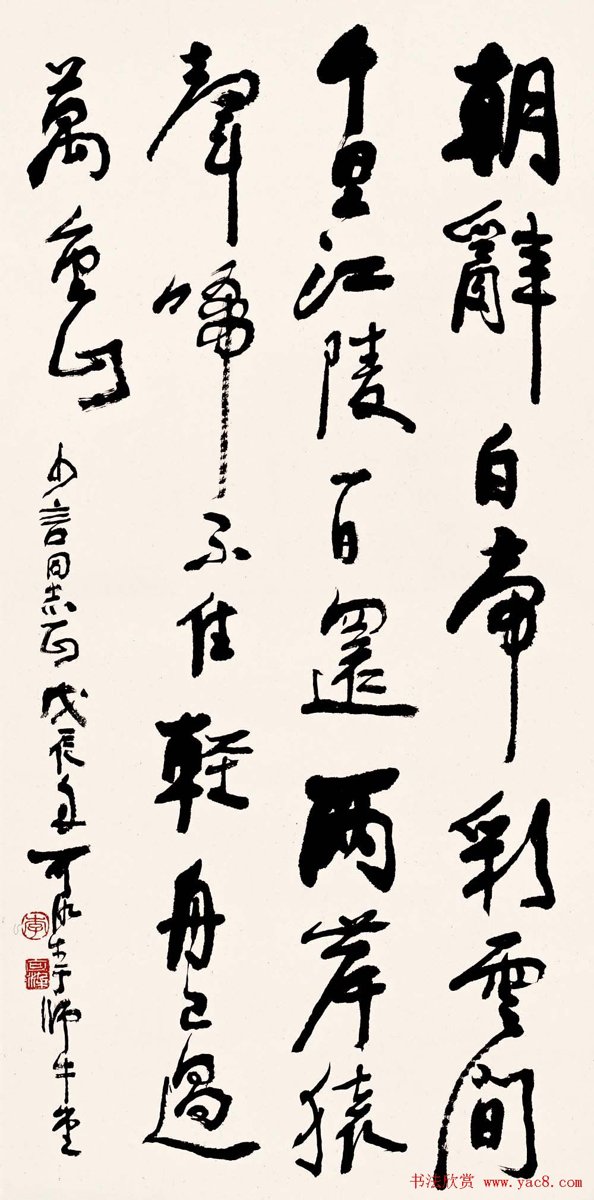 朝辭白帝彩雲間
千里江陵一日還兩岸猿
聲啼不住輕舟已過
萬重山
少言同志正戊辰年可染書于師牛堂
李
可染
书法欣赏 www.yac8.com